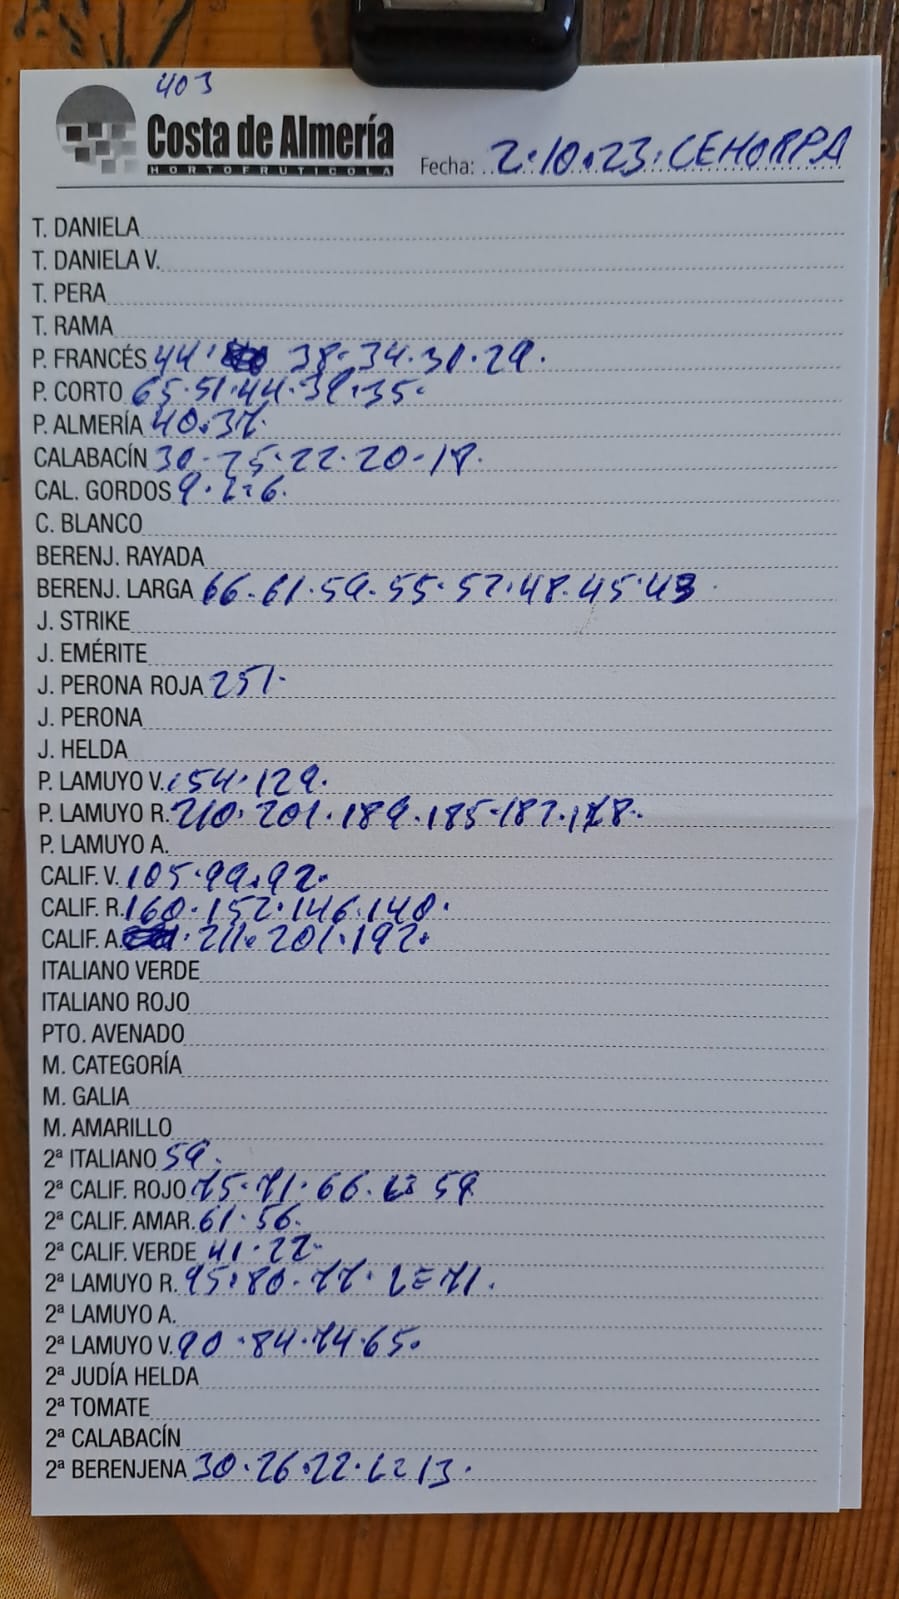 403
Costa de Almería
HORTOFRUTICOLA
Fecha: 2.10.23. CEHORPA
T. DANIELA
T. DANIELA V.
T. PERA
T. RAMA
P. FRANCÉS 44. 38. 34. 31. 29.
P. CORTO 65. 51. 44. 39. 35.
P. ALMERÍA 40. 37.
CALABACÍN 30. 25. 22. 20. 18.
CAL. GORDOS 9. L= 6.
C. BLANCO
BERENJ. RAYADA
BERENJ. LARGA 66. 61. 59. 55. 52. 48. 45. 43.
J. STRIKE
J. EMÉRITE
J. PERONA ROJA 251.
J. PERONA
J. HELDA
P. LAMUYO V. 154. 129.
P. LAMUYO R. 210. 201. 189. 185. 182. 178.
P. LAMUYO A.
CALIF. V. 105. 99. 92.
CALIF. R. 160. 152. 146. 140.
CALIF. A. 211. 201. 192.
ITALIANO VERDE
ITALIANO ROJO
PTO. AVENADO
M. CATEGORÍA
M. GALIA
M. AMARILLO
2ª ITALIANO 59.
2ª CALIF. ROJO 75. 71. 66. 59
2ª CALIF. AMAR. 61. 56.
2ª CALIF. VERDE 41. 22.
2ª LAMUYO R. 95. 80. 77. L= 71.
2ª LAMUYO A.
2ª LAMUYO V. 90. 84. 74. 65.
2ª JUDÍA HELDA
2ª TOMATE
2ª CALABACÍN
2ª BERENJENA 30. 26. 22. L= 13.